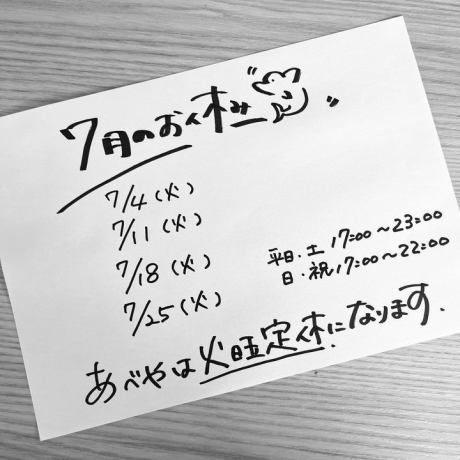 7月のお休み
7/4(火)
7/11(火)
7/18(火)
7/25(火)
平日・土 17:00〜23:00
日・祝 17:00〜22:00
あべやは火曜定休になります.